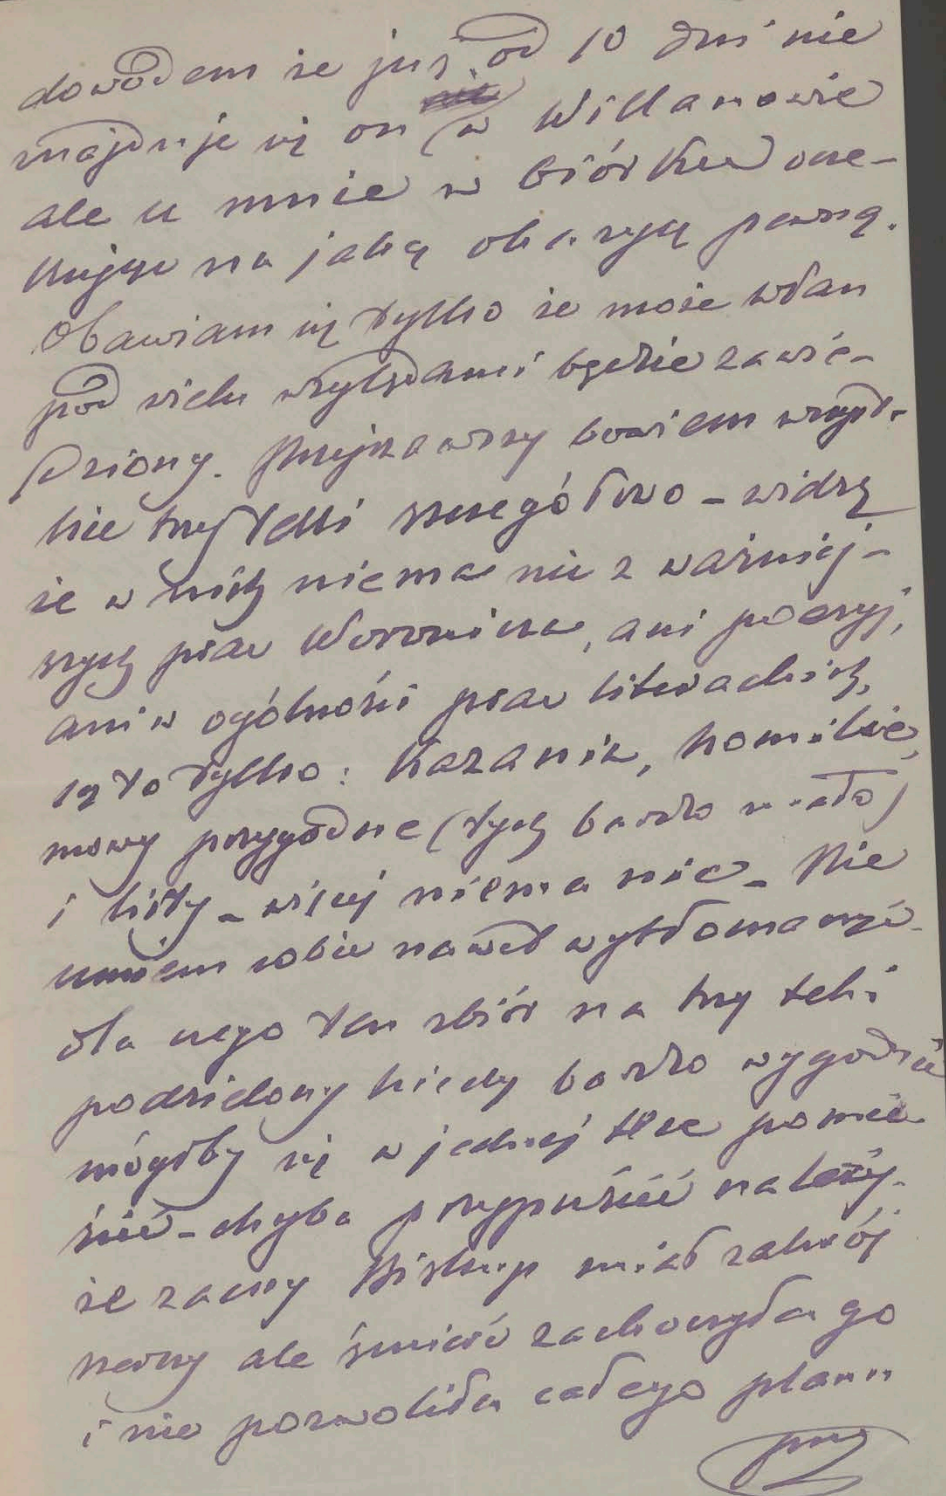 dowodem że już od 10 dni nie
znajduje się on w Willanowie
ale u mnie w biórku ocze-
kując na jaką okazyę pewną.
Obawiam się tylko że może
pod wielu względami będzie zawie-
dziony. Przejrzawszy bowiem wszyst-
kie trzy teki szczegółowo – widzę
że w nich niema nic z ważniej-
szych prac Woronicza, ani poezyj,
ani w ogólności prac literackich,
są to tylko: Kazania, homilie,
mowy przygodne (tych bardzo mało)
i listy – więcej niema nic – Nie
umiem sobie nawet wytłomaczyć
dla czego ten zbiór na trzy teki
podzielony kiedy bardzo wygodnie
mógłby się w jednej tece pomie-
ścić – chyba przypuścić należy
że zacny Biskup miał zakrój
szerszy ale śmierć zachwycyła go
i nie pozwoliła całego planu
prze